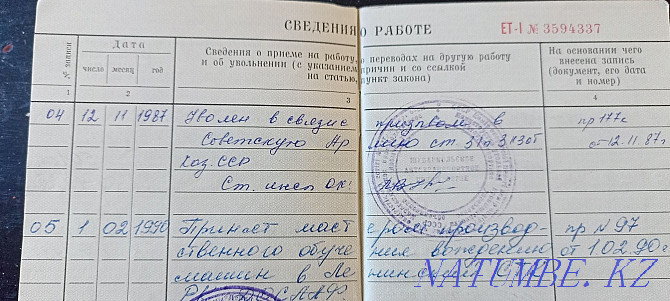 СВЕДЕНИЯ О РАБОТЕ
ЕТ-I № 3594337
№ записи
Дата
число месяц год
Сведения о приеме на работу, о переводах на другую работу
и об увольнении (с указанием причин и со ссылкой
на статью, пункт закона)
На основании чего
внесена запись
(документ, его дата
и номер)
1 2 3 4
04 12 11 1987 Уволен в связи с призывом в пр 177к
Советскую Армию ст. 31 п. 3 КЗоТ от 12.11.87г
Каз. ССР
Ст. инсп ок:
05 1 02 1990 Принят мастером производ- пр N 97
ственного обучения вождению от 1.02.90г
машин в Ле
NATUMBE.KZ